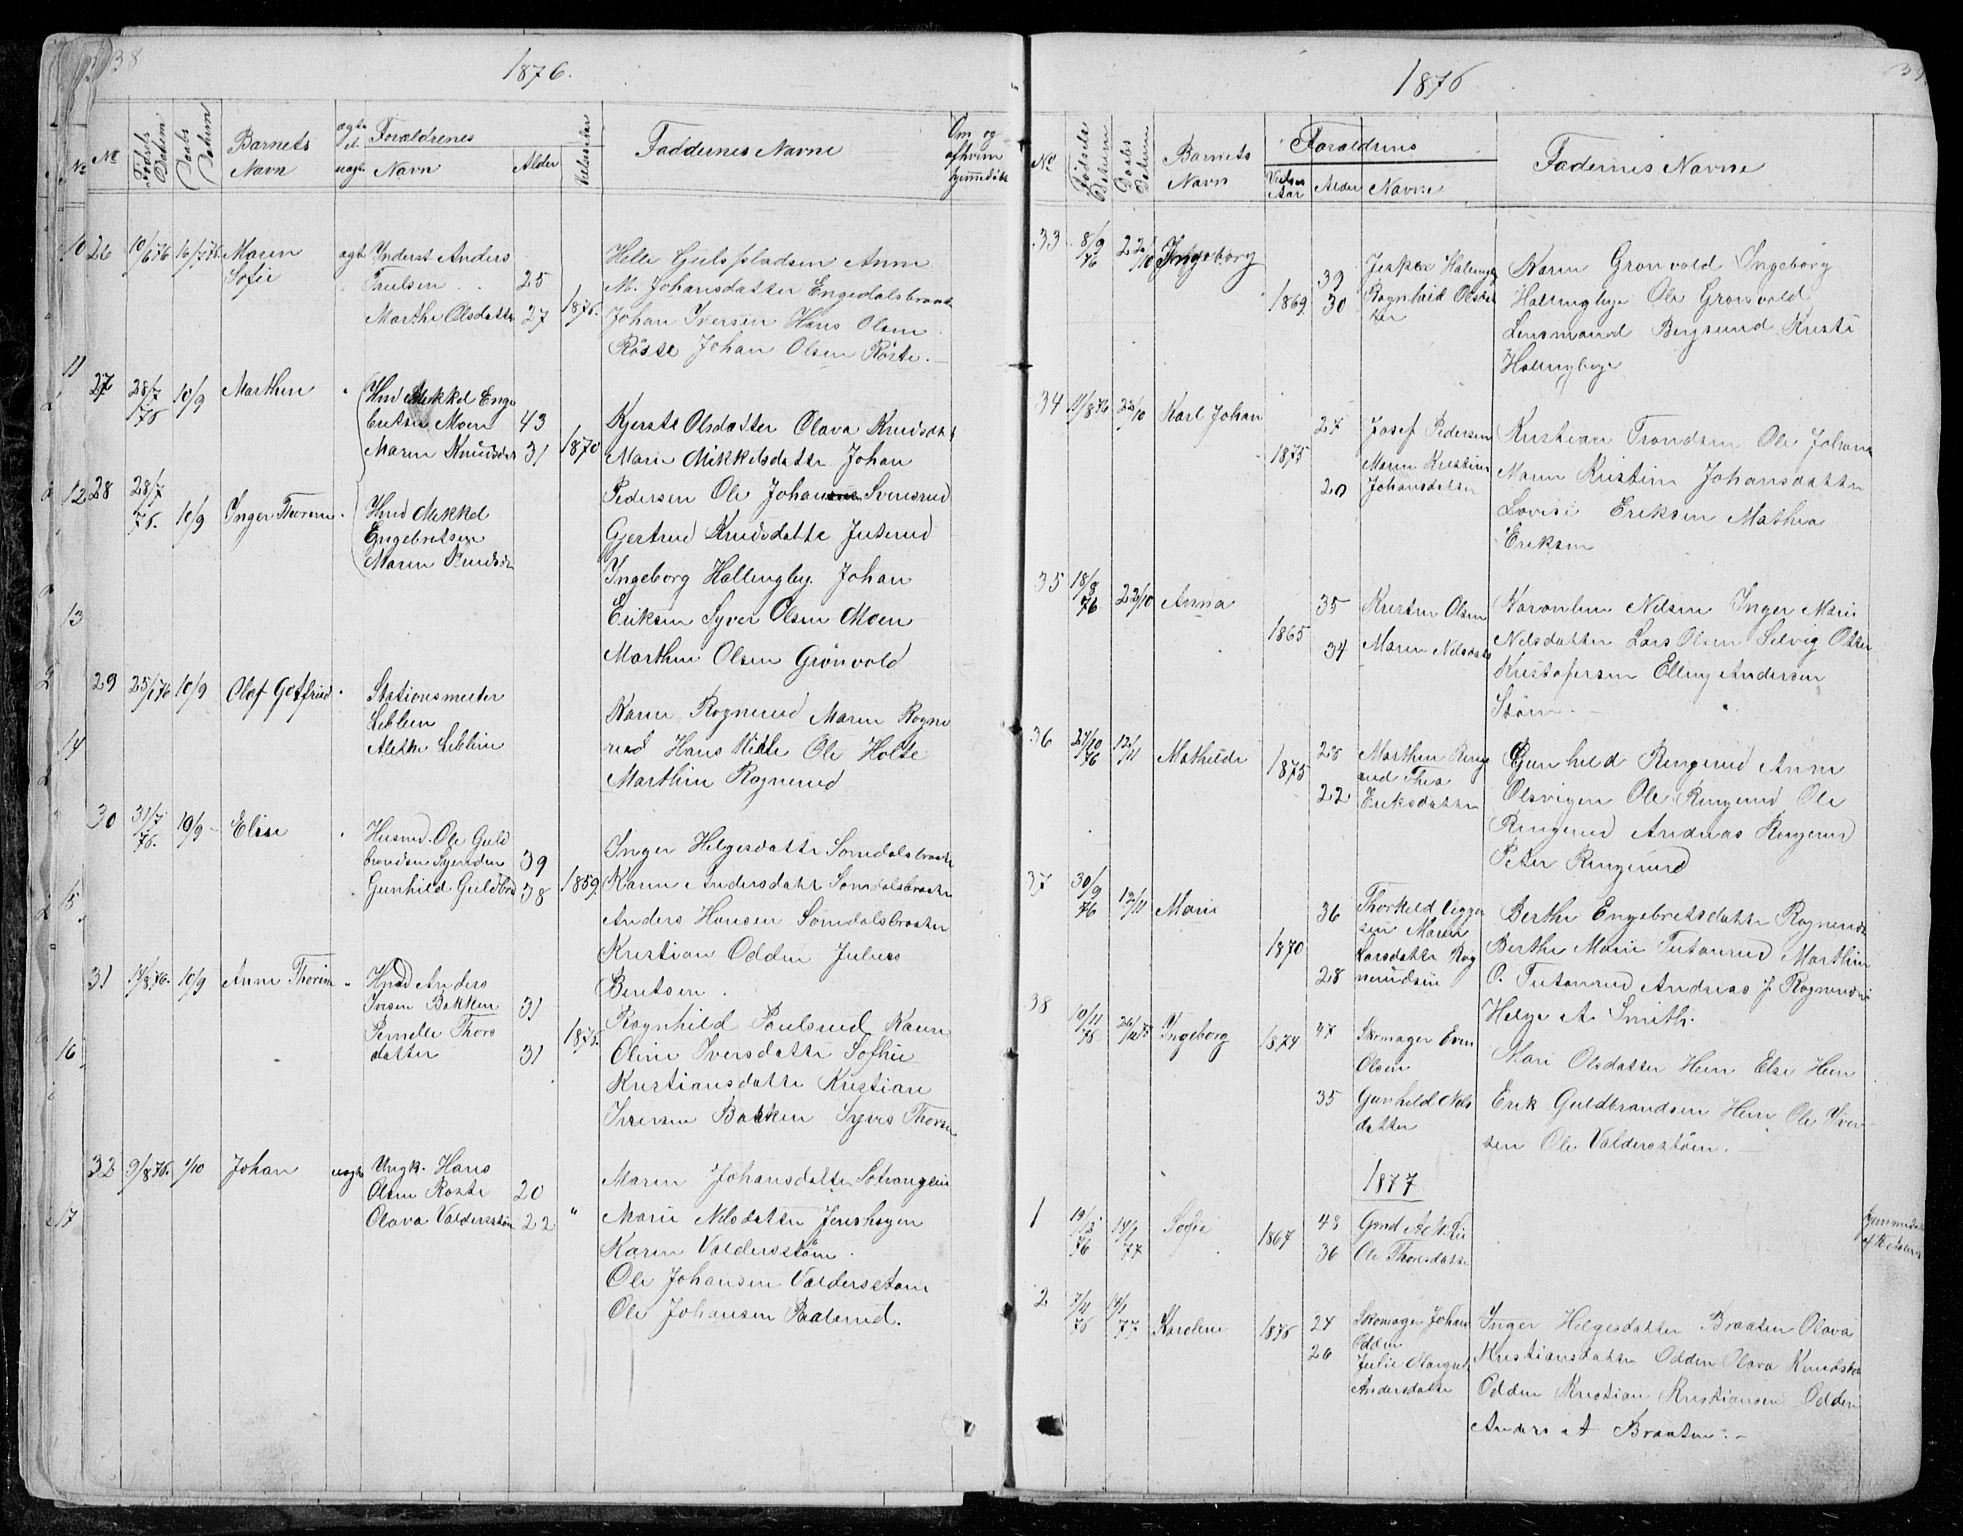 38
1876.
No
Fødsels Datum
Daabs Datum
Barnets Navn
ægte el. uægte
Forældrenes Navn
Alder
Vielsesaar
Faddernes Navne
Om og afhvem hjemmedøbt
26 10/6 76 16/7 76 Maren ægte Inderst Anders
Sofie Paulsen 25
Marthe Olsdatter 27 1876.
Helle Gulspladsen Anne
M. Johansdatter Engedalsbraat
Johan Iversen Hans Olsen
Røste Johan Olsen Røste.
27 28/7 76 10/9 Marthin " Hmd Mikkel Enge
bretsen Moen 43
Maren Knudsdr 31 1870
Kjersti Olsdatter Olava Knudsdat
Marie Mikkelsdatter Johan
28 28/7 76. 10/9 Inger Therene " Hmd Mikkel
Engebretsen
Maren Knudsdr
Pedersen Ole Johansen Svensrud
Gjertrud Knudsdatter Juterud
Ingeborg Hallingby. Johan
Eriksen Syver Olsen Moen
Marthin Olsen Grønvold
29 25/6 76 10/9 Olaf Gotfried " Stationsmester
Leblein
Alethe Leblein
Karen Rognerud Maren Rogne
rud Hans Hille Ole Holte
Marthin Rognerud
30 31/7 76. 10/9 Elise " Husmd. Ole Guld
brandsen 39
Gunhild Guldbrd 38 1859.
Inger Helgesdatter Somdalsbraate
Karen Andersdatter Somdalsbraate
Anders Hansen Somdalsbraaten
Kristian Odden Julius
Berntsen.
31 17/8 76. 10/9 Anne Thorine " Hmd Anders
Iversen Bakken 31
Pernille Thors
datter 31 1875.
Ragnhild Paulsrud Karen
Oline Iversdatter Sofhie
Kristiansdatter Kristian
Iversen Bakken Syvers Thorsen
32 9/8 76. 1/10 Johan uægte Ungk. Hans
Olsen Røste 20
Olava Valdersstøen 22 "
Maren Johansdatter
Marie Nilsdatter
Karen Valdersstøen.
Ole Johansen Valdersstøen
Ole Johansen Paalerud.
10
11
12
13
14
15
16
17
1876
39
No
Fødsels Datum
Daabs Datum
Barnets Navn
Forældrenes
Vielses Aar
Alder
Navne
Fadernes Navne
33 8/9 76 22/10 Ingeborg
1869 39 30 Jesper Hallingby
Ragnhild Olsdat
ter
Karen Grønvold Ingeborg
Hallingbye Ole Grønvold
Lensmand Bergsund Kristi
Hallingbye
34 11/8 76 22/10 Karl Johan 1875 27 Josef Pedersen
Maren Kristine
20 Johansdatter
Kristian Trondsen Ole Johans
Maren Kristine Johansdatter
Lovise Eriksen Mathea
Eriksen
35 18/8 76 22/10 Anna 1865 35 Kristen Olsen
34 Maren Nilsdatter
Karoline Nilsen Inger Marie
Nilsdatter Lars Olsen Selvig Otter
Kristofersen Elling Andersen
Støen.
36 27/10 76 12/11 Mathilde 1875 28 Marthin Ringe
rud Thea
22 Eriksdatter
Gunhild Ringerud Anne
Olsvigen Ole Ringerud Ole
Ringerud Andreas Ringerud
Peter Ringerud
37 30/9 76 12/11 Marie 1870 36 Thorkild Vigger
sen Maren
Larsdatter Rog
28 nerudseie
Berthe Engebretsdatter Rognerud
Berthe Marie Tutanrud Marthin
O. Tutanrud Andreas J. Rognerud
Helge A. Smith.
38 19/11 76 26/12 75 Ingeborg 1874 47 Skomager Even
Olsen
35 Gunhild Nils
datter
Mari Olsdatter Hem Else Hem
Erik Guldbrandsen Hem Ole Iver
sen Ole Valdersstøen.
1877
1 19/12 76 14/1 77 Sofie 1867 48 Gmd A. N. Lie
36 Ole Thoresdatter
hjemmedøbt
2 7/11 76 14/1 77 Karoline 1876 24 Skomager Johan
Odden
26 Julie Margret
Andersdatter
Inger Helgesdatter Braaten Olava
Kristiansdatter Odden Olava Knudsdat
Odden Kristian Kristiansen Odden
Anders A Braaten.